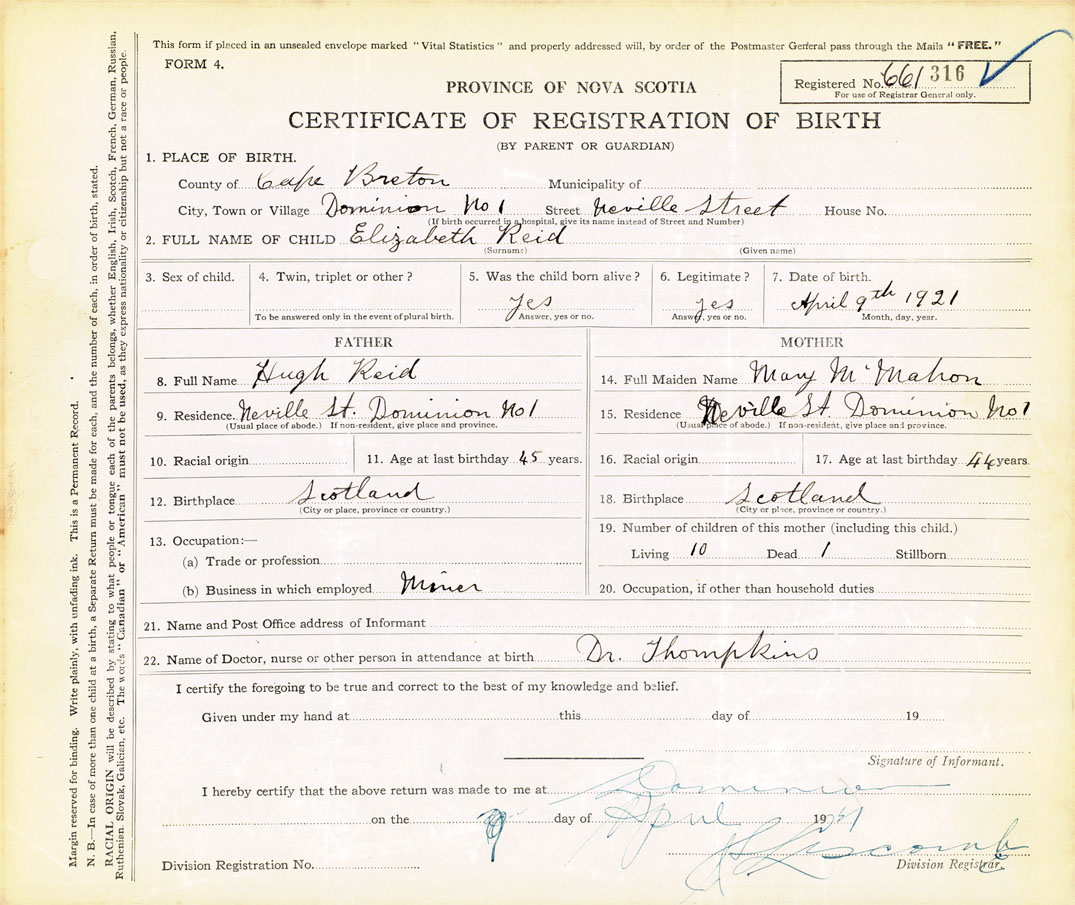 This form if placed in an unsealed envelope marked "Vital Statistics" and properly addressed will, by order of the Postmaster General pass through the Mails "FREE."
FORM 4.
Registered No. 661 316
For use of Registrar General only.
PROVINCE OF NOVA SCOTIA
CERTIFICATE OF REGISTRATION OF BIRTH
(BY PARENT OR GUARDIAN)
1. PLACE OF BIRTH.
County of Cape Breton Municipality of
City, Town or Village Dominion No 1 Street Neville Street House No.
(If birth occurred in a hospital, give its name instead of Street and Number)
2. FULL NAME OF CHILD Elizabeth Reid
(Surname) (Given name)
3. Sex of child. 4. Twin, triplet or other? 5. Was the child born alive? 6. Legitimate? 7. Date of birth.
yes yes April 9th 1921
To be answered only in the event of plural birth. Answer, yes or no. Answer, yes or no. Month, day, year.
FATHER
8. Full Name Hugh Reid
9. Residence. Neville St. Dominion No 1
(Usual place of abode.) If non-resident, give place and province.
10. Racial origin 11. Age at last birthday 45 years.
12. Birthplace Scotland
(City or place, province or country.)
13. Occupation:—
(a) Trade or profession
(b) Business in which employed Miner
MOTHER
14. Full Maiden Name Mary McMahon
15. Residence Neville St. Dominion No 1
(Usual place of abode.) If non-resident, give place and province.
16. Racial origin 17. Age at last birthday 44 years.
18. Birthplace Scotland
(City or place, province or country.)
19. Number of children of this mother (including this child.)
Living 10 Dead 1 Stillborn
20. Occupation, if other than household duties
21. Name and Post Office address of Informant
22. Name of Doctor, nurse or other person in attendance at birth Dr. Thompkins
I certify the foregoing to be true and correct to the best of my knowledge and belief.
Given under my hand at this day of 19
Signature of Informant.
I hereby certify that the above return was made to me at Dominion
on the 9 day of April 1921
Division Registration No. Division Registrar.
Margin reserved for binding. Write plainly, with unfading ink. This is a Permanent Record.
N. B.—In case of more than one child at a birth, a Separate Return must be made for each, and the number of each, in order of birth, stated.
RACIAL ORIGIN will be described by stating to what people or tongue each of the parents belongs, whether English, Irish, Scotch, French, German, Russian,
Ruthenian, Slovak, Galician, etc. The words "Canadian" or "American" must not be used, as they express nationality or citizenship but not a race or people.